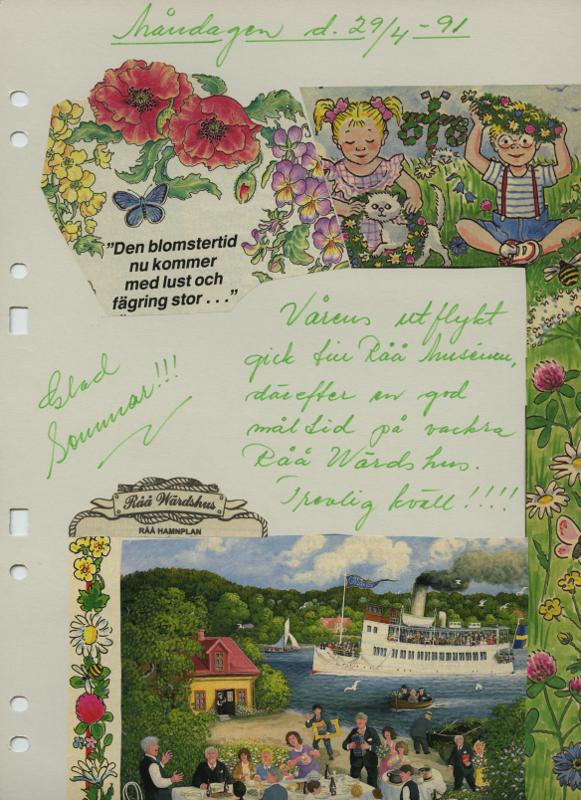 Måndagen d. 29/4-91
"Den blomstertid
nu kommer
med lust och
fägring stor . . ."
Vårens utflykt
gick till Råå Muséum,
därefter en god
måltid på vackra
Råå Wärdshus.
Trevlig kväll!!!!
Glad
Sommar!!!
Råå Wärdshus
RÅÅ HAMNPLAN